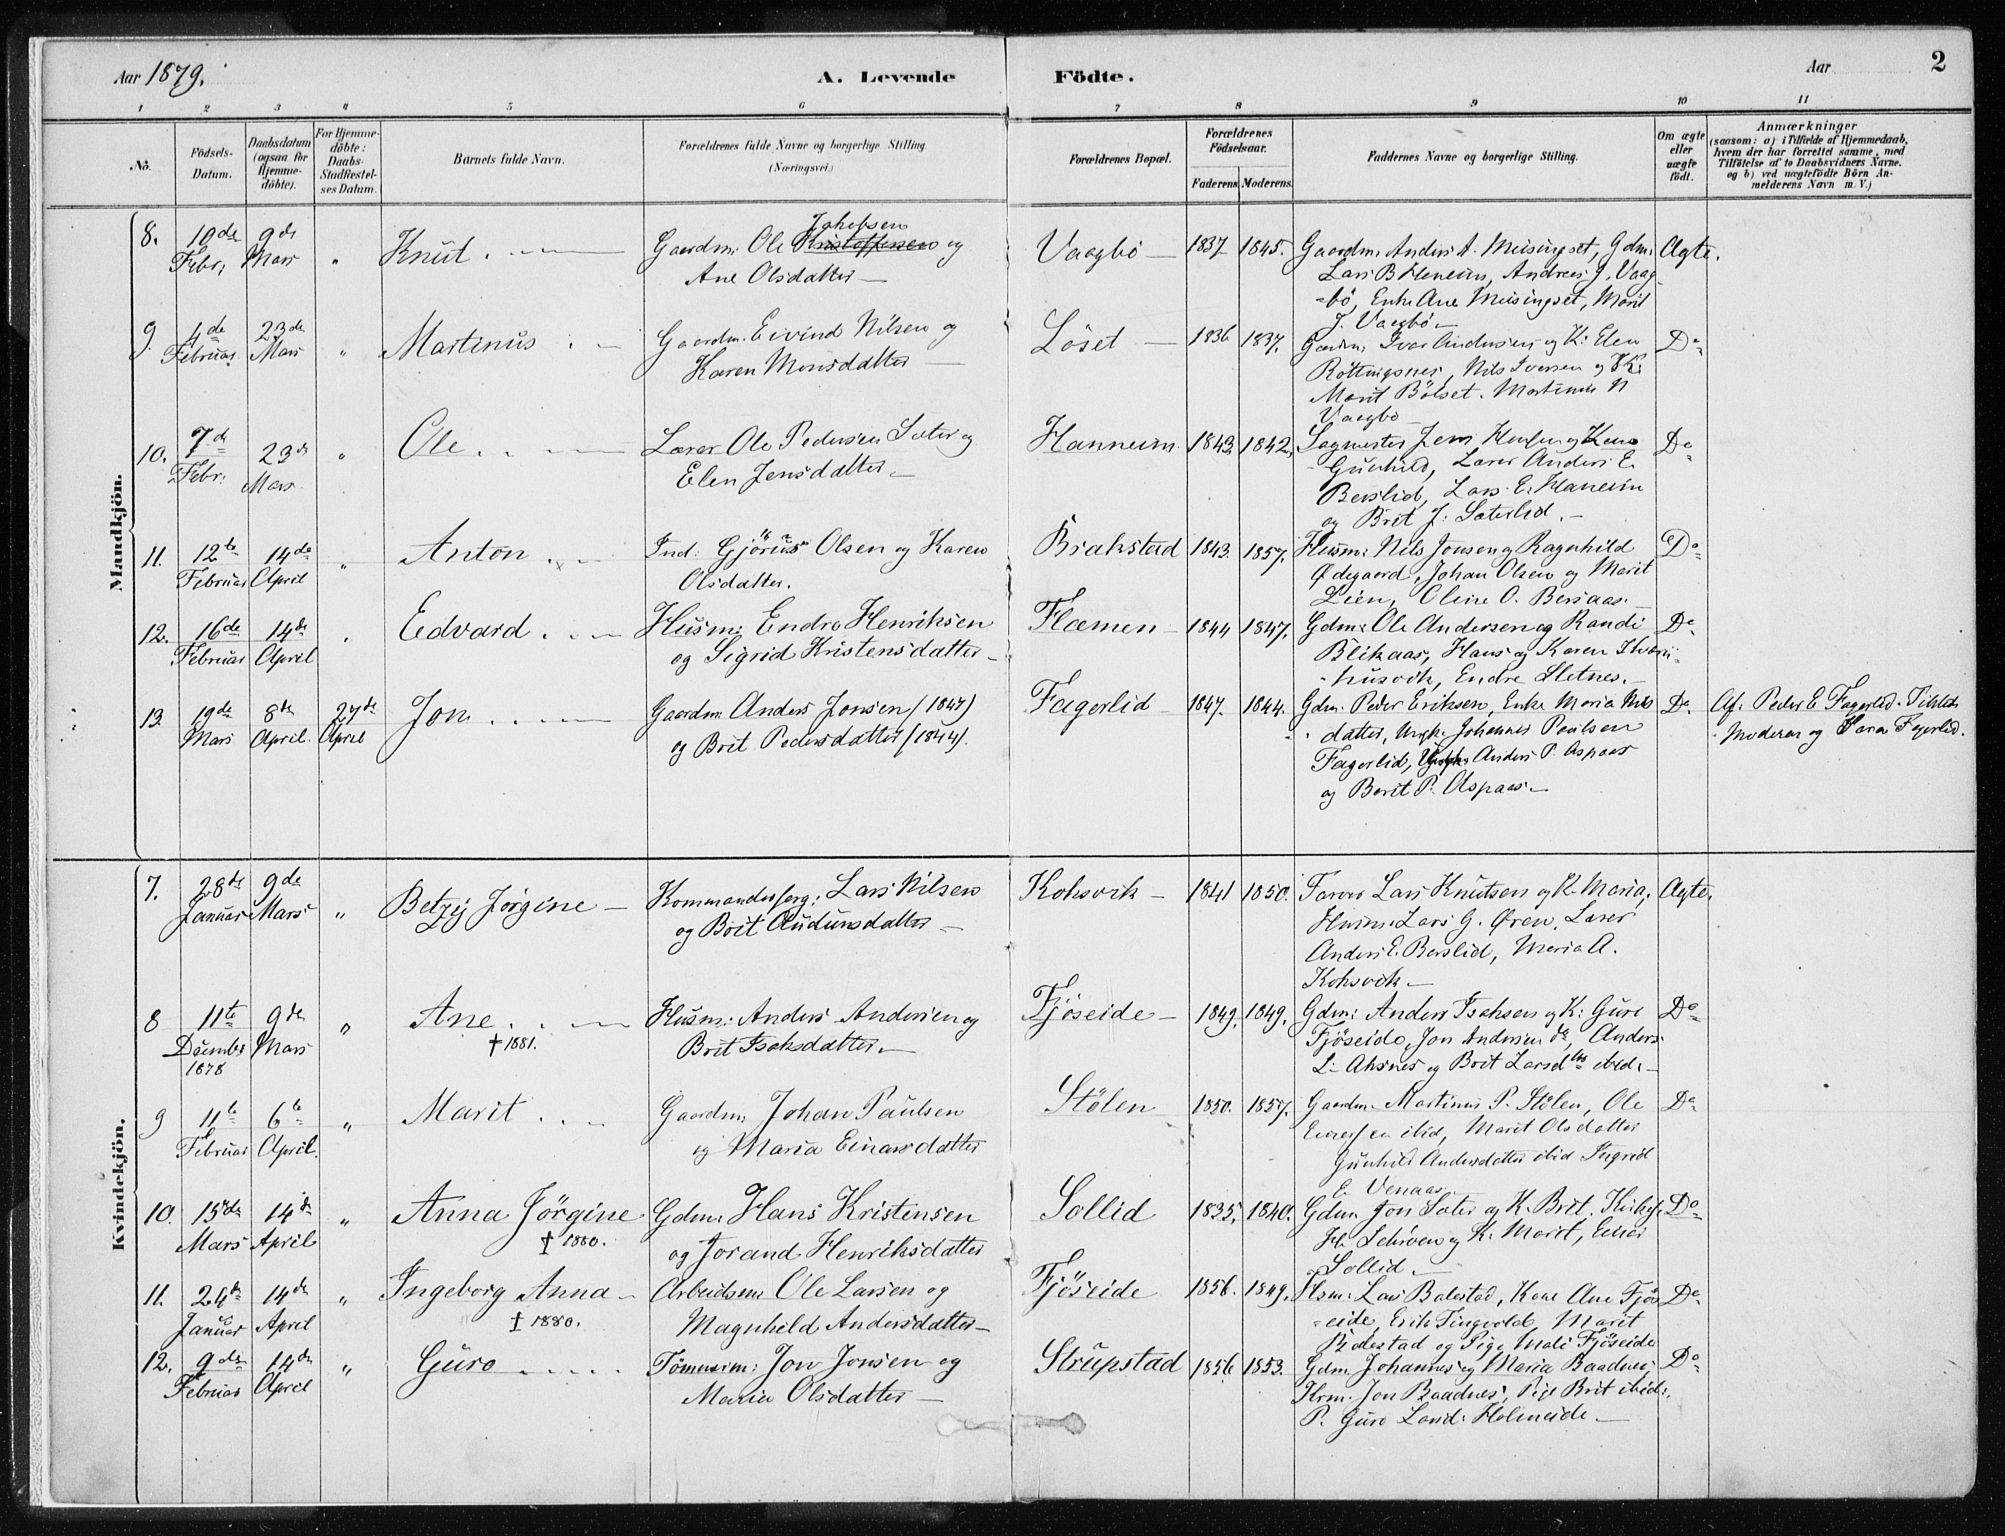 Aar 1879.
A. Levende
Födte.
Aar
2
1 2 3 4 5 6 7 8 9 10 11
No.
Födsels-Datum.
Daabsdatum (ogsaa for Hjemme-döbte).
For Hjemme-döbte: Daabs-Stadfæstel-ses Datum.
Barnets fulde Navn.
Forældrenes fulde Navne og borgerlige Stilling (Næringsvei.)
Forældrenes Bopæl.
Forældrenes Födselsaar.
Faderens. Moderens.
Faddernes Navne og borgerlige Stilling.
Om ægte eller uægte födt.
Anmærkninger
(saasom: a) i Tilfælde af Hjemmedaab, hvem der har forrettet samme, med Tilföielse af to Daabsvidners Navne. og b) ved uægtefödte Börn An-melderens Navn m. V.)
Mandkjön.
8. 10de Febr. 9de Mars " Knut. Gaardm: Ole Kristoffersen Jakobsen og
Ane Olsdatter
Vaagbø 1837 1845. Gaardm: Anders A. Meisingset, Gdm: Ægte.
Lars B Haneim, Andreas J. Vaag
-bø, Enke Ane Meisingset, Marit
J. Vaagbø
9. 4de Februar 23de Mars " Martinus Gaardm. Eivind Nilsen og
Karen Monsdatter
Løset 1836 1837. Gaardm: Ivar Andersen og K: Elen Do
Røttingsnes, Nils Iversen og K:
Marit Bølset. Martinus N
Vaagbø
10. 7de Febr. 23de Mars " Ole Lærer Ole Pedersen Sæter og
Elen Jensdatter
Hanneim 1843 1842. Sagmester Jens og Kone Do
Gunhild, Lærer Anders E.
Berslid, Lars E. Haneim
og Brit J. Sæterlid.
11. 12te Februar 14de April " Anton Ind: Gjørüs Olsen og Karen
Olsdatter.
Brakstad 1843. 1857. Husm: Nils Jonsen og Ragnhild Do
Ødegaard, Johan Olsen og Marit
Lien, Oline O. Bersaas.
12. 16de Februar 14de April Edvard Husm: Endre Henriksen
og Sigrid Kristensdatter
Flemen 1844 1847. Gdm: Ole Andersen og Randi Do
Blikaas, Hans og Karen
-husvik, Endre Sletnes.
13. 19de Mars 8de April. 27de April Jon Gaardm Anders Jonsen (1847)
og Brit Pedersdatter (1844).
Fagerlid 1847. 1844. Gdm: Peder Eriksen, Enke Maria Nils Do Af: Peder E Fagerlid.
datter, Ungk. Johannes Paulsen
Moderen og Fagerlid.
Fagerlid, Anders P. Aspaas
og Berit P. Aspaas.
Kvindekjön.
7. 28de Januar 9de Mars " Betzy Jørgine Kommanderserg: Lars Nilsen
og Brit Audunsdatter
Kohsvik 1841 1850. Farver Lars Knutsen og K. Maria, Ægte.
Husm: Lars G. Øren, Lærer
Anders E. Berslid, Maria A.
Kohsvik
8 11te December 1878 9de Mars " Ane. † 1881. Husm: Anders Andersen og
Brit Isaksdatter
Fjøseide 1849. 1849. Gdm: Anders Isaksen og K: Guro Do
Fjøseide, Jon Andersen do, Anders
L. Aksnes og Brit Larsdtr ibid.
9 11te Februar 6te April. " Marit Gaardm Johan Paulsen
og Maria Einarsdatter
Stølen 1850. 1857. Gaardm. Martinus P. Stølen, Ole Do
ibid, Marit Olsdatter
Gunhild Andersdatter ibid Ingrid
E. Venaas
10. 15de Mars 14de April " Anna Jørgine † 1880. Gdm: Hans Kristensen
og Jorand Henriksdatter
Sollid 1835. 1840. Gdm. Jon Sæter og K. Brit. Kirkes. Do
og K. Marit, Einar
Sollid
11. 24de Januar 14de April " Ingeborg Anna † 1880. Arbeidsm Ole Larsen og
Magnhild Andersdatter
Fjøseide 1856. 1849. Hsm: Lars Balestad, Kone Ane Fjøs Do
-eide, Erik Tingvold, Marit
og Pige Fjøseide
12. 9de Februar 14de April " Guro Tømmerm: Jon Jonsen og
Maria Olsdatter
Strupstad 1856 1853. Gdm. Johannes og Maria Baadnes, Do
Hsm. Jon Baadnes, Pige Brit ibid.
P. Guro Holmeide